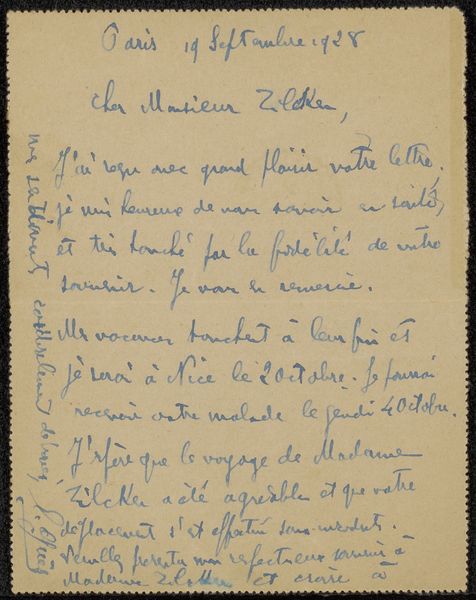 Paris 19 Septembre 1928
Cher Monsieur Zilcken,
J'ai reçu avec grand plaisir votre lettre.
je suis heureux de vous savoir en santé,
et très touché par la fidélité de votre
souvenir. Je vous en remercie.
Mes vacances touchent à leur fin et
je serai à Nice le 2 Octobre. Je pourrai
recevoir votre malade le jeudi 4 Octobre.
J'espère que le voyage de Madame
Zilcken a été agréable et que votre
déplacement s'est effectué sans incidents.
Veuillez présenter mon respectueux souvenir à
Madame Zilcken et croire à
mes sentiments cordialement dévoués